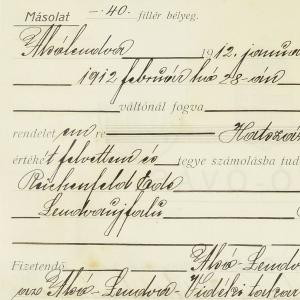 Másolat —.40. fillér bélyeg.
Alsólendva 1912. január
1912 február hó 28-án
váltónál fogva
rendelet em re Hatszáz
értékét felvettem és tegye számolásba tud
Reichenfeld Ede
Lendvaujfalu
Alsó-Lendv
Fizetendő Alsó-Lendva Vidéki takar